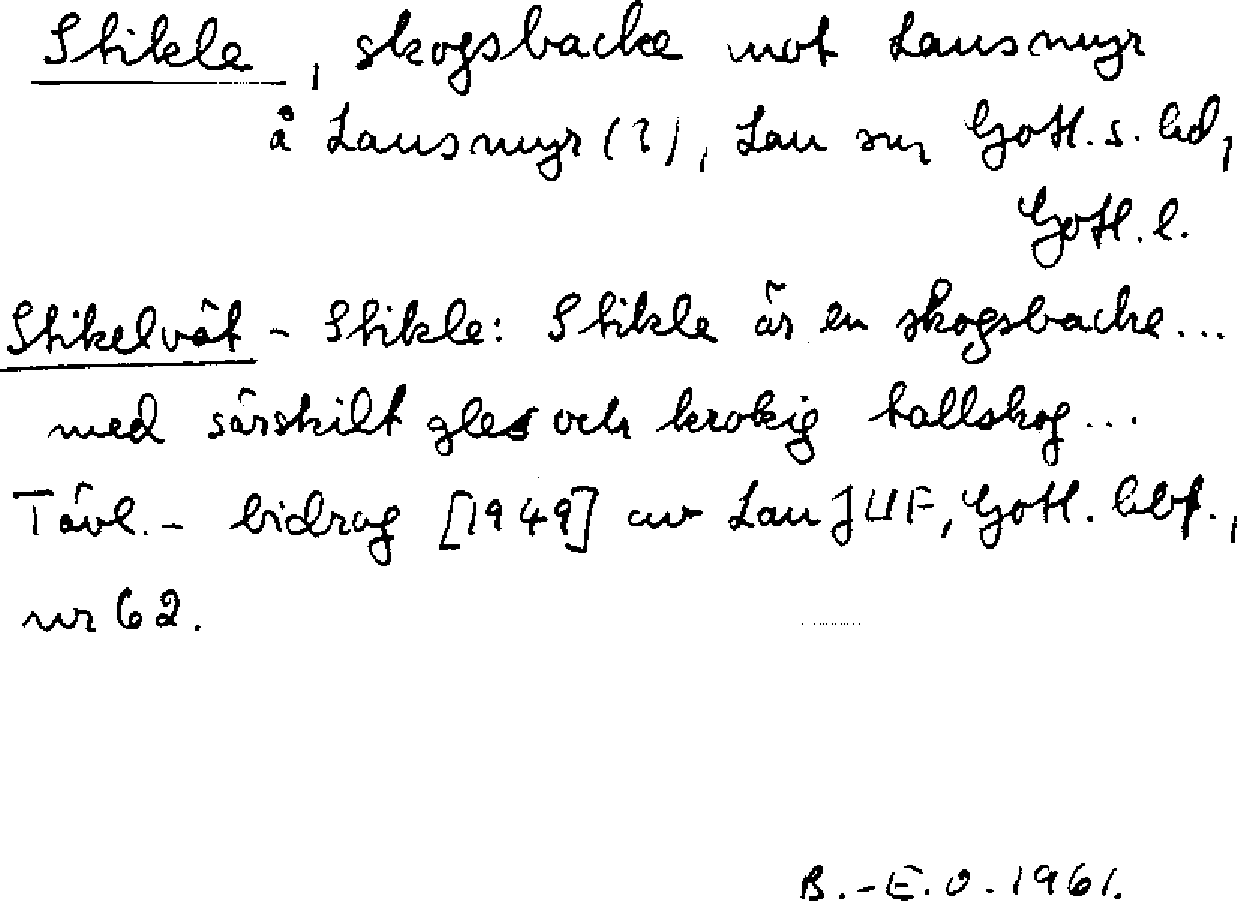 Stikle, skogsbacke mot Lausmyr
å Lausmyr (?), Lau sn, Gotl. s. hd,
Gotl. l.
Stikelvät - Stikle: Stikle är en skogsbacke...
med särskilt gles och krokig tallskog...
Tävl.- bidrag [1949] av Lau JUF, Gotl. hbf.,
nr 62.
B.-E. O. 1961.